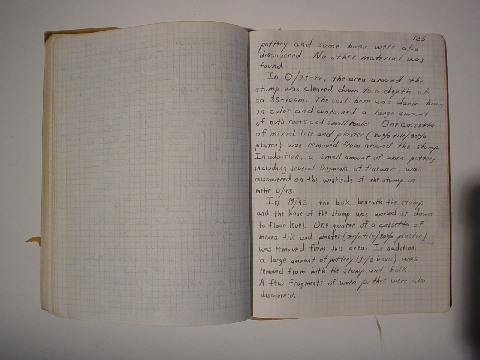 125
pottery and some bone were also
discovered. No other material was
found.
In O/95-, the area around the
stump was cleared down to a depth of
ca 35-40cm. The soil here was dark brown
in color and contained a large amount
of both roots and small rocks. One cassette
of mixed tile and plaster (
plaster) was removed from around the stump.
In addition, a small amount of worn pottery,
including several fragments of fineware, was
discovered on the west side of the stump in
meter
In M/95 the bulk beneath the stump
and the base of the stump was worked at down
to floor level. One quarter of a cassette of
mixed tile and plaster (tile/plaster)
was removed from this area. In addition
a large amount of pottery (1/2 box) was
removed from both the stump and bulk.
A few fragments of worn were also
discovered.